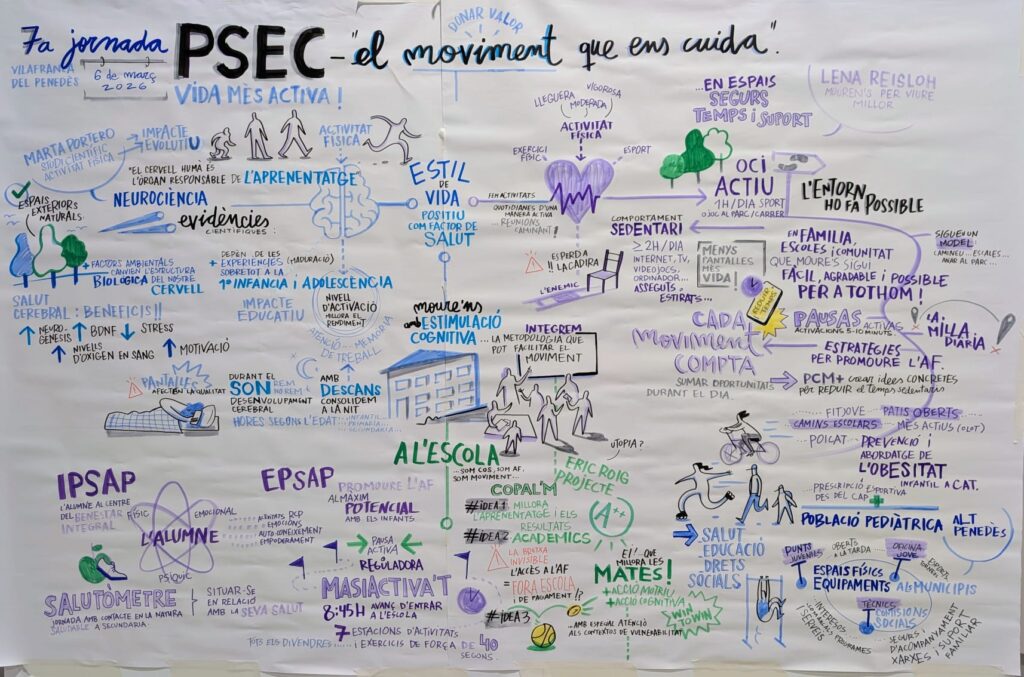 7a jornada
PSEC - "el moviment que ens cuida".
DONAR VALOR
VILAFRANCA
DEL PENEDÈS
6 de març
2026
VIDA MÉS ACTIVA!
MARTA PORTERO
IMPACTE
EVOLUTIU
"EL CERVELL HUMÀ ES
L'ÒRGAN RESPONSABLE DE L'APRENENTATGE
NEUROCIÈNCIA
evidències
CIENTÍFIQUES:
ACTIVITAT
FÍSICA
ESPAIS
EXTERIORS
NATURALS
+ FACTORS AMBIENTALS
CANVIEN L'ESTRUCTURA
BIOLÒGICA DEL NOSTRE
CERVELL
DEPÈN DE LES
+ EXPERIÈNCIES (MADURACIÓ)
SOBRETOT A LA
1ª INFANCIA i ADOLESCÈNCIA
IMPACTE
EDUCATIU
NIVELL
D'ACTIVACIÓ
MILLORA EL
RENDIMENT
ATENCIÓ
MEMÒRIA
DE TREBALL
SALUT
CEREBRAL: BENEFICIS!!
NEURO-
GÈNESIS
BDNF
STRESS
NIVELLS
D'OXIGEN EN SANG
MOTIVACIÓ
PANTALLES
AFECTEN LA QUALITAT
DURANT EL
SON REM
NO REM
DESENVOLUPAMENT
CEREBRAL
HORES SEGONS L'EDAT
INFANTIL
PRIMÀRIA
SECUNDÀRIA
AMB
DESCANS
CONSOLIDEM
A LA NIT
ESTIL
DE
VIDA
POSITIU
COM FACTOR DE
SALUT
moure'ns
amb ESTIMULACIÓ
COGNITIVA
FEM ACTIVITATS
QUOTIDIANES D'UNA
MANERA ACTIVA
...REUNIONS
CAMINANT!
LLEUGERA
MODERADA
VIGOROSA
ACTIVITAT
FÍSICA
EXERCICI
FÍSIC
ESPORT
ES PERD A
LA CADIRA
L'ENEMIC
COMPORTAMENT
SEDENTARI
≥ 2H/DIA
INTERNET, TV,
VIDEOJOCS,
ORDINADOR...
ASSEGUTS
ESTIRATS...
MENYS
PANTALLES
MÉS
VIDA!
...EN ESPAIS
SEGURS
TEMPS i SUPORT
LENA REISLOH
MOUREN'S PER VIURE
MILLOR
OCI
ACTIU
1H/DIA SPORT
O JOC AL PARC/CARRER
L'ENTORN
HO FA POSSIBLE
EN FAMÍLIA,
ESCOLES i COMUNITAT
QUE MOURE'S SIGUI
FÀCIL, AGRADABLE i POSSIBLE
PER A TOTHOM!
SIGUE UN
MODEL!
CAMINEU... ESCALES...
ANAR AL PARC...
CADA
MOVIMENT
COMPTA
SUMAR OPORTUNITATS
DURANT EL DIA
PAUSAS ACTIVAS
ACTIVACIONS 5-10 MINUTS
LA MILLA
DIÀRIA
ESTRATÈGIES
PER PROMOURE L'AF.
PCM+ crear idees CONCRETES
per REDUIR el temps sedentari
INTEGREM
...LA METODOLOGIA QUE
POT FACILITAR EL
MOVIMENT
UTOPIA?
A L'ESCOLA
...SOM COS, SOM AF.
SOM MOVIMENT...
ERIC ROIG
PROJECTE
COPAL'M
#IDEA1 MILLORA
L'APRENENTATGE i ELS
RESULTATS
#IDEA2 ACADEMICS
A++
LA BRUIXA
INVISIBLE
L'ACCÉS A L'AF
FORA ESCOLA
ÉS DE PAGAMENT!?
#IDEA3
...AMB ESPECIAL ATENCIÓ
ALS CONTEXTOS DE VULNERABILITAT
EI! QUE
MILLORA LES
MATES!
+ ACCIÓ MOTRIU
+ ACCIÓ COGNITIVA
WIN
TO WIN
IPSAP
L'ALUMNE AL CENTRE
DEL BENESTAR
INTEGRAL
FÍSIC
EMOCIONAL
L'ALUMNE
PSÍQUIC
EMOCIONS
AUTOCONEIXEMENT
EMPODERAMENT
SALUTÒMETRE
JORNADA AMB CONTACTE EN LA NATURA
SALUDABLE A SECUNDARIA
SITUAR-SE
EN RELACIÓ
AMB LA SEVA SALUT
EPSAP
PROMOURE L'AF
AL MÀXIM
POTENCIAL
AMB ELS INFANTS
PAUSA
ACTIVA
REGULADORA
MASIACTIVA'T
8:45H AVANÇ D'ENTRAR
A L'ESCOLA
7 ESTACIONS D'ACTIVITATS
i EXERCICIS DE FORÇA DE 40
SEGONS.
TOTS ELS DIVENDRES
FITJOVE
PATIS OBERTS
CAMINS ESCOLARS
MÉS ACTIUS (OLOT)
POICAT
PREVENCIÓ i
ABORDATGE DE
L'OBESITAT
INFANTIL A CAT.
PRESCRIPCIÓ ESPORTIVA
DES DEL CAP
POBLACIÓ PEDIÀTRICA
ALT
PENEDÈS
SALUT
EDUCACIÓ
DRETS
SOCIALS
PUNTS
OBERTS
A LA TARDA
OFICINA
JOVE
ESPAIS FÍSICS
EQUIPAMENTS
ALS MUNICIPIS
TÈCNICS
COMISIONS
SOCIALS
SEGUIMENT
D'ACOMPANYAMENT
XARXES i SUPORT
FAMILIAR